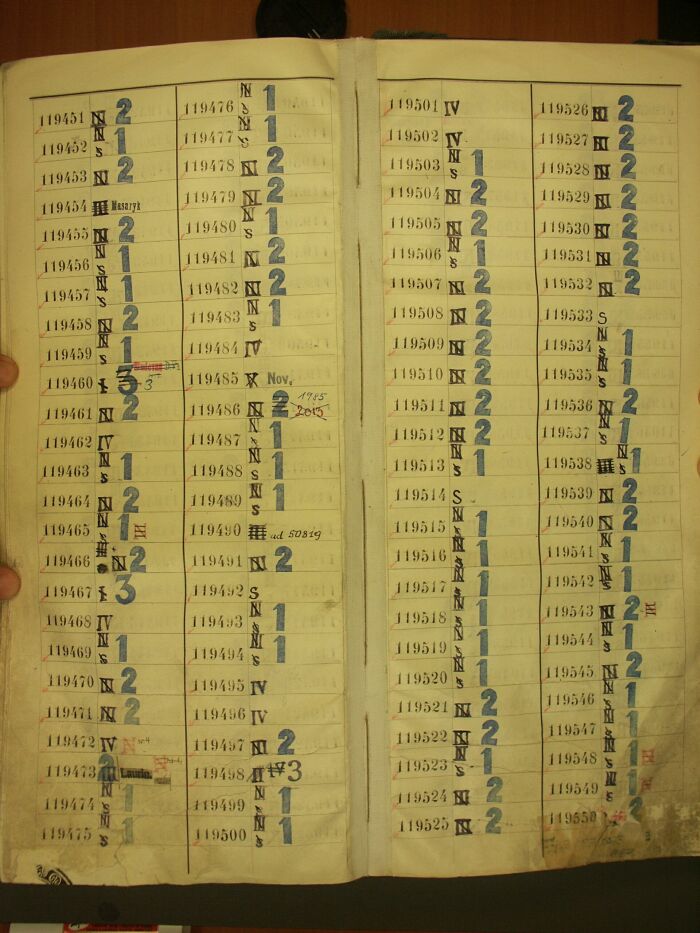 119451 N 2
119452 N s 1
119453 N 2
119454 Masaryk
119455 N 2
119456 N s 1
119457 N s 1
119458 N 2
119459 N s 1
119460 3 3
119461 N 2
119462 IV
119463 N s 1
119464 N 2
119465 N s 1
119466 N 2
119467 I 3
119468 IV
119469 N s 1
119470 N 2
119471 N 2
119472 IV N
119473 2 Laurin.
119474 N s 1
119475 N s 1
119476 N s 1
119477 N s 1
119478 N 2
119479 N 2
119480 N s 1
119481 N 2
119482 N 2
119483 N s 1
119484 IV
119485 V Nov.
119486 N 2 1985 2015
119487 N s 1
119488 N s 1
119489 N s 1
119490 ad 50819
119491 N 2
119492 S
119493 N s 1
119494 N s 1
119495 IV
119496 IV
119497 N 2
119498 II IV 3
119499 N s 1
119500 N s 1
119501 IV
119502 IV
119503 N s 1
119504 N 2
119505 N 2
119506 N s 1
119507 N 2
119508 N 2
119509 N 2
119510 N 2
119511 N 2
119512 N 2
119513 N s 1
119514 S
119515 N s 1
119516 N s 1
119517 N s 1
119518 N s 1
119519 N s 1
119520 N s 1
119521 N 2
119522 N 2
119523 N s 1
119524 N 2
119525 N 2
119526 N 2
119527 N 2
119528 N 2
119529 N 2
119530 N 2
119531 N 2
119532 N 2
119533 S
119534 N s 1
119535 N s 1
119536 N 2
119537 N s 1
119538 N s 1
119539 N 2
119540 N 2
119541 N s 1
119542 N s 1
119543 N 2
119544 N s 1
119545 N 2
119546 N s 1
119547 N s 1
119548 N s 1
119549 N s 1
119550 2